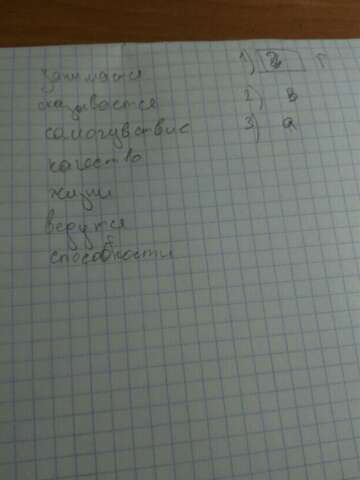 занимаюся
оказывается
самочувствие
качество
жизни
верутся
способности
1) г
2) в
3) а